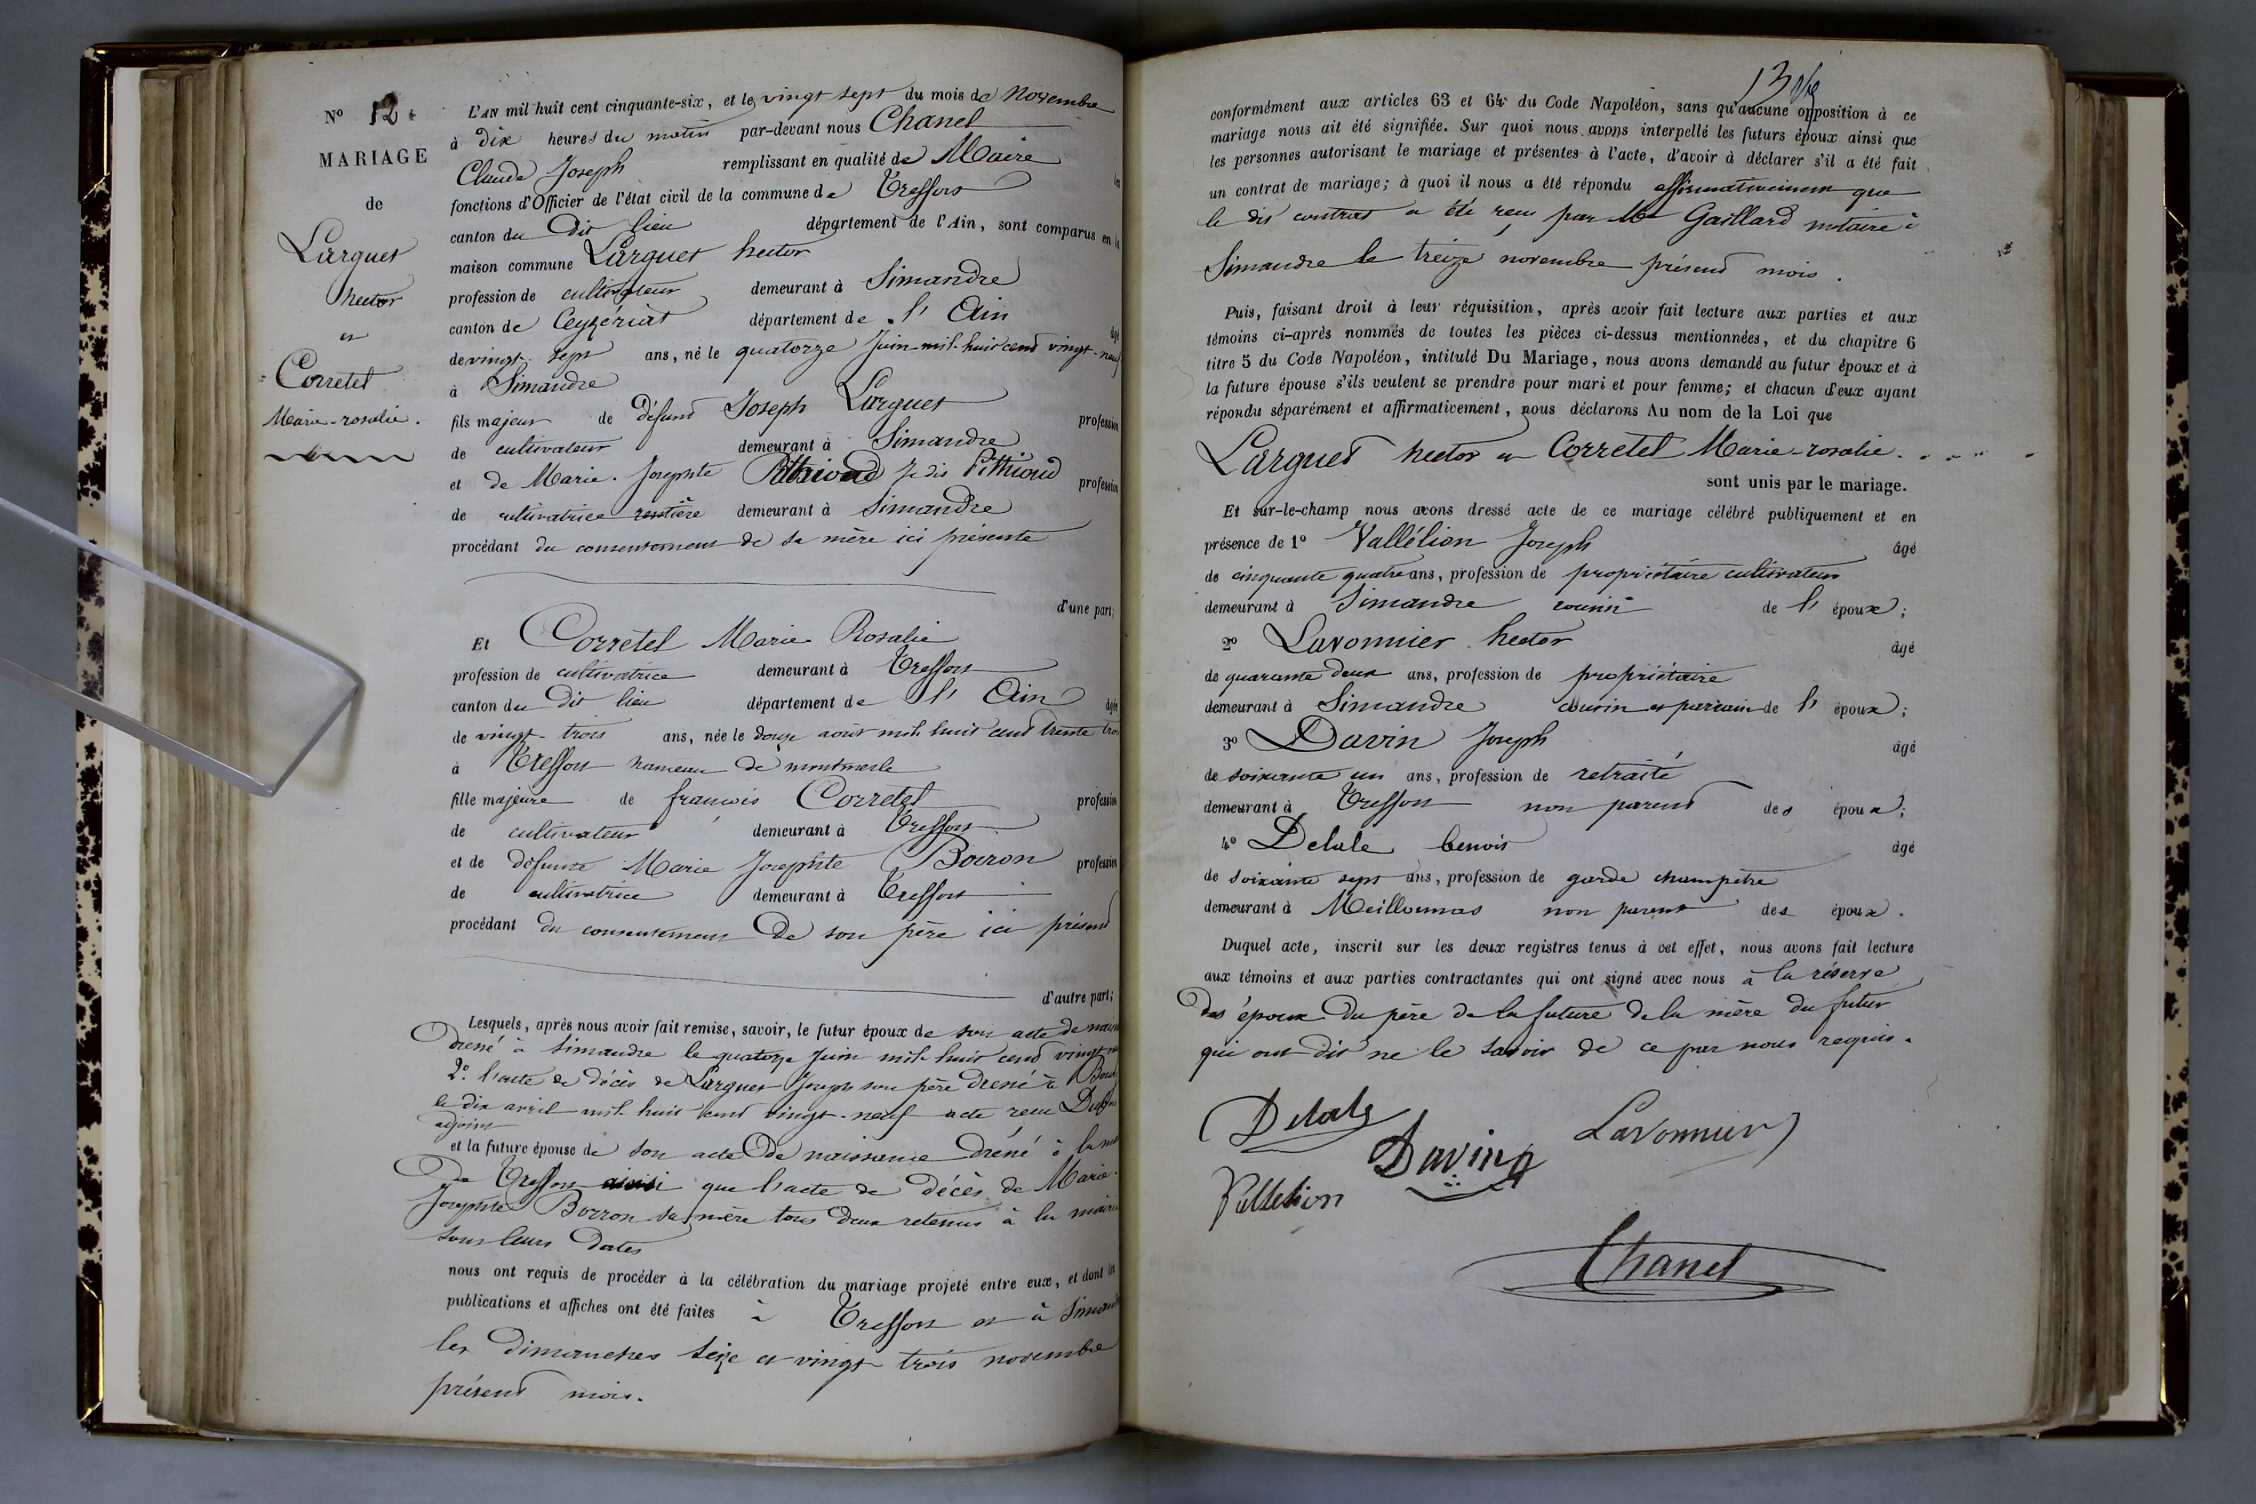 N° 12.
MARIAGE
de
Larguet
hector
et
Corretel
Marie-rosalie.
L'AN mil huit cent cinquante-six, et le vingt sept du mois de Novembre
à dix heures du matin par-devant nous Chanel
Claude Joseph remplissant en qualité de Maire les
fonctions d'Officier de l'état civil de la commune de Treffort
canton du dit lieu département de l'Ain, sont comparus en la
maison commune Larguet hector
profession de cultivateur demeurant à Simandre
canton de Ceyzériat département de l' Ain âgé
de vingt-sept ans, né le quatorze Juin mil huit cent vingt-neuf
à Simandre
fils majeur de défunt Joseph Larguet profession
de cultivateur demeurant à Simandre
et de Marie-Josephte Pithioud profession
de cultivatrice rentière demeurant à Simandre
procédant du consentement de sa mère ici présente
d'une part;
Et Corretel Marie Rosalie
profession de cultivatrice demeurant à Treffort
canton du dit lieu département de l' Ain âgée
de vingt-trois ans, née le douze août mil huit cent trente trois
à Treffort hameau de montmerle
fille majeure de françois Corretel profession
de cultivateur demeurant à Treffort
et de défunte Marie Josephte Borron profession
de cultivatrice demeurant à Treffort
procédant du consentement de son père ici présent
d'autre part;
Lesquels, après nous avoir fait remise, savoir, le futur époux de son acte de naiss
dressé à Simandre le quatorze Juin mil huit cent vingt
2° l'acte de décès de Larguet Joseph son père dressé à
le dix avril mil huit cent vingt-neuf acte reçu
adjoint
et la future épouse de son acte de naissance dressé à la
de Treffort ainsi que l'acte de décès de Marie-
Josephte Borron sa mère tous deux retenus à la mairie
sous leurs dates
nous ont requis de procéder à la célébration du mariage projeté entre eux, et dont les
publications et affiches ont été faites à Treffort et à Simandre
les Dimanches seize et vingt trois novembre
présent mois.
13
conformément aux articles 63 et 64 du Code Napoléon, sans qu'aucune opposition à ce
mariage nous ait été signifiée. Sur quoi nous avons interpellé les futurs époux ainsi que
les personnes autorisant le mariage et présentes à l'acte, d'avoir à déclarer s'il a été fait
un contrat de mariage; à quoi il nous a été répondu affirmativement que
le dit contrat a été reçu par Me Gaillard notaire à
Simandre le treize novembre présent mois.
Puis, faisant droit à leur réquisition, après avoir fait lecture aux parties et aux
témoins ci-après nommés de toutes les pièces ci-dessus mentionnées, et du chapitre 6
titre 5 du Code Napoléon, intitulé Du Mariage, nous avons demandé au futur époux et à
la future épouse s'ils veulent se prendre pour mari et pour femme; et chacun d'eux ayant
répondu séparément et affirmativement, nous déclarons Au nom de la Loi que
Larguet hector et Corretel Marie-rosalie
sont unis par le mariage.
Et sur-le-champ nous avons dressé acte de ce mariage célébré publiquement et en
présence de 1° Vallélion Joseph âgé
de cinquante quatre ans, profession de propriétaire cultivateur
demeurant à Simandre cousin de l' époux;
2° Lavonnier hector âgé
de quarante deux ans, profession de propriétaire
demeurant à Simandre cousin et parrain de l' époux;
3° Davin Joseph âgé
de soixante un ans, profession de retraité
demeurant à Treffort non parent des époux;
4° Delale benoit âgé
de soixante sept ans, profession de garde champetre
demeurant à Meillonnas non parent des époux.
Duquel acte, inscrit sur les deux registres tenus à cet effet, nous avons fait lecture
aux témoins et aux parties contractantes qui ont signé avec nous à la réserve
des époux du père de la future de la mère du futur
qui ont dit ne le savoir de ce par nous requis.
Delale
Davin
Lavonnier
Vallelion
Chanel